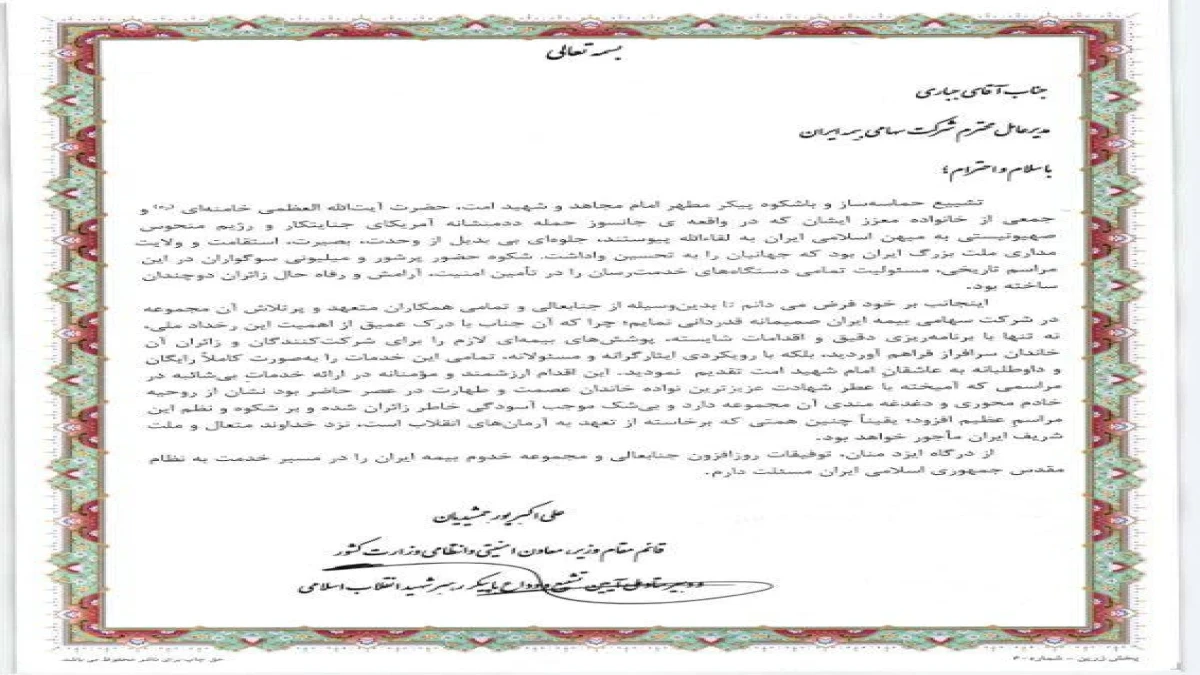 بسمه تعالی
جناب آقای جباری
مدیرعامل محترم شرکت سهامی بیمه ایران
با سلام و احترام؛
تشییع حماسه‌ساز و باشکوه پیکر مطهر امام مجاهد و شهید امت، حضرت آیت‌الله العظمی خامنه‌ای (ره) و
جمعی از خانواده معزز ایشان که در واقعه ی جانسوز حمله ددمنشانه آمریکای جنایتکار و رژیم منحوس
صهیونیستی به میهن اسلامی ایران به لقاءالله پیوستند، جلوه‌ای بی بدیل از وحدت، بصیرت، استقامت و ولایت
مداری ملت بزرگ ایران بود که جهانیان را به تحسین واداشت. شکوه حضور پرشور و میلیونی سوگواران در این
مراسم تاریخی، مسئولیت تمامی دستگاه‌های خدمت‌رسان را در تأمین امنیت، آرامش و رفاه حال زائران دوچندان
ساخته بود.
اینجانب بر خود فرض می دانم تا بدین‌وسیله از جنابعالی و تمامی همکاران متعهد و پرتلاش آن مجموعه
در شرکت سهامی بیمه ایران صمیمانه قدردانی نمایم؛ چرا که آن جناب با درک عمیق از اهمیت این رخداد ملی،
نه تنها با برنامه‌ریزی دقیق و اقدامات شایسته، پوشش‌های بیمه‌ای لازم را برای شرکت‌کنندگان و زائران آن
خاندان سرافراز فراهم آوردید، بلکه با رویکردی ایثارگرانه و مسئولانه، تمامی این خدمات را به‌صورت کاملاً رایگان
و داوطلبانه به عاشقان امام شهید امت تقدیم نمودید. این اقدام ارزشمند و مؤمنانه در ارائه خدمات بی‌شائبه در
مراسمی که آمیخته با عطر شهادت عزیزترین نواده خاندان عصمت و طهارت در عصر حاضر بود نشان از روحیه
خادم محوری و دغدغه مندی آن مجموعه دارد و بی‌شک موجب آسودگی خاطر زائران شده و بر شکوه و نظم این
مراسم عظیم افزود؛ یقیناً چنین همتی که برخاسته از تعهد به آرمان‌های انقلاب است، نزد خداوند متعال و ملت
شریف ایران مأجور خواهد بود.
از درگاه ایزد منان، توفیقات روزافزون جنابعالی و مجموعه خدوم بیمه ایران را در مسیر خدمت به نظام
مقدس جمهوری اسلامی ایران مسئلت دارم.
علی اکبر پورجمشیدیان
قائم مقام وزیر، معاون امنیتی و انتظامی وزارت کشور
و دبیر ستاد ملی آیین تشییع و وداع با پیکر رهبر شهید انقلاب اسلامی
پخش زرین - شماره ۴۰
حق چاپ برای ناشر محفوظ می باشد